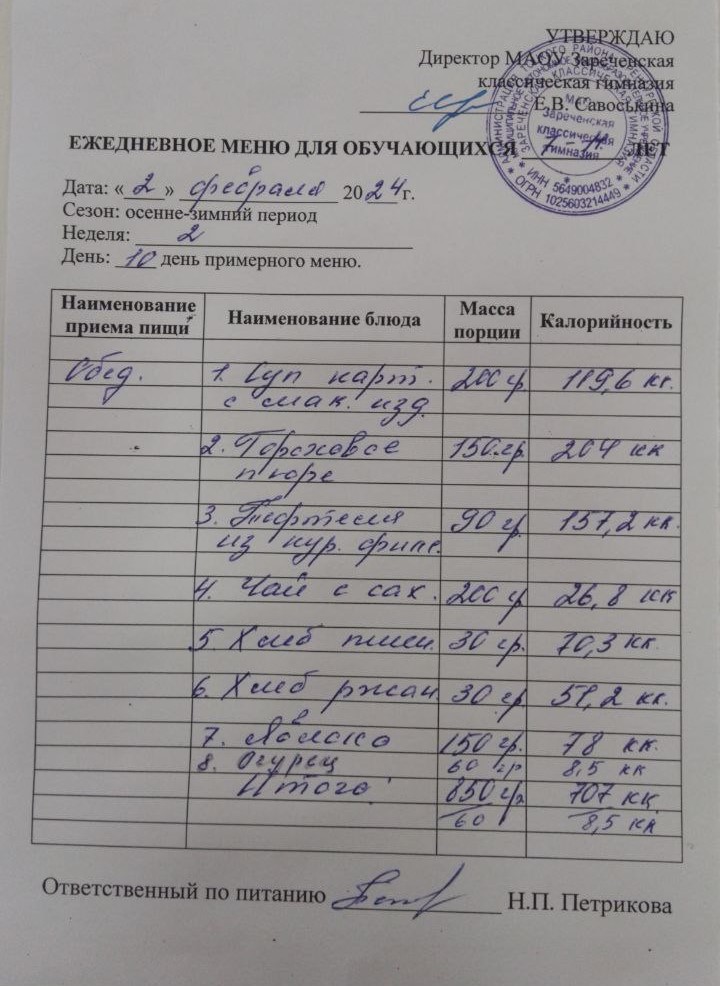 УТВЕРЖДАЮ
Директор МАОУ Зареченская
классическая гимназия
Е.В. Савоськина
ЕЖЕДНЕВНОЕ МЕНЮ ДЛЯ ОБУЧАЮЩИХСЯ 7-11 ЛЕТ
Зареченская
классическая
гимназия
ИНН 5649004832
ОГРН 1025603214449
Дата: « 2 » февраля 2024 г.
Сезон: осенне-зимний период
Неделя: 2
День: 10 день примерного меню.
Наименование приема пищи Наименование блюда Масса порции Калорийность
Обед. 1. Суп карт. 200 гр 119,6 кк.
с мак. изд.
2. Гороховое 150 гр 204 кк
пюре
3. Тефтели 90 гр. 157,2 кк.
из кур. филе.
4. Чай с сах. 200 гр 26,8 кк
5. Хлеб пшен. 30 гр. 70,3 кк.
6. Хлеб ржан. 30 гр 51,2 кк.
7. Яблоко 150 гр. 78 кк.
8. Огурец 60 гр 8,5 кк
Итого 850 гр 707 кк
60 8,5 кк
Ответственный по питанию Н.П. Петрикова